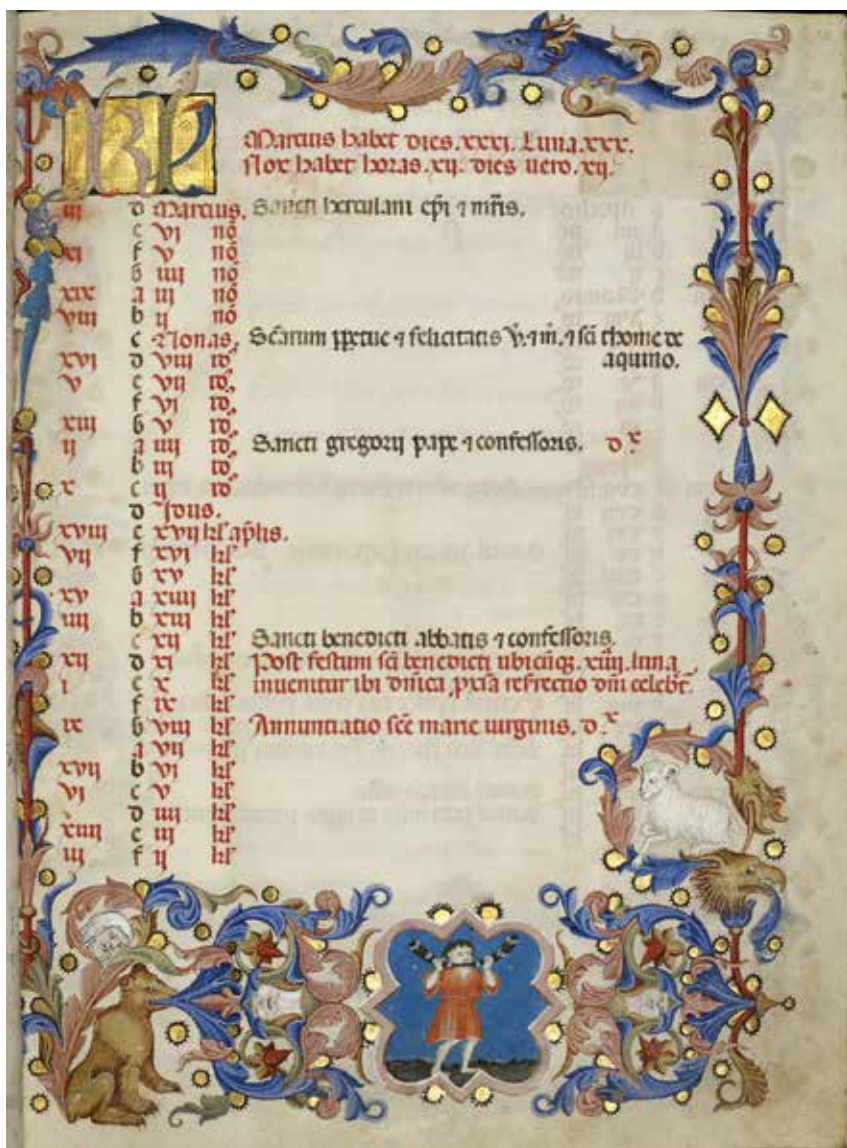 KL
Marcius habet dies .xxxj. Luna .xxx.
Nox habet horas .xij. dies uero .xij.
iij d Marcius. Sancti herculani ep̄i ⁊ mr̄is.
e vj nō
xj f v nō
g iiij nō
xix a iij nō
viij b ij nō
c Nonas. Scārum ꝑpetue ⁊ felicitatis v̄. ⁊ m̄. ⁊ sc̄i thome de
aquino.
xvj d viij id
v e vij id
f vj id
xiij g v id
ij a iiij id
Sancti gregorij pape ⁊ confessoris. d x
b iij id
x c ij id
d Idus.
xviij e xvij kl ap̄lis.
vij f xvj kl
g xv kl
xv a xiiij kl
iiij b xiij kl
c xij kl Sancti benedicti abbatis ⁊ confessoris.
xij d xj kl Post festum sc̄i benedicti ubicūqꝫ .xiiij. luna
i e x kl inuenitur ibi dn̄ica ꝓxīa resrectio dn̄i celebr̄t.
f ix kl
ix g viij kl Annuntiatio sc̄e marie uirginis. d x
a vij kl
xvij b vj kl
vj c v kl
d iiij kl
xiiij e iij kl
iij f ij kl